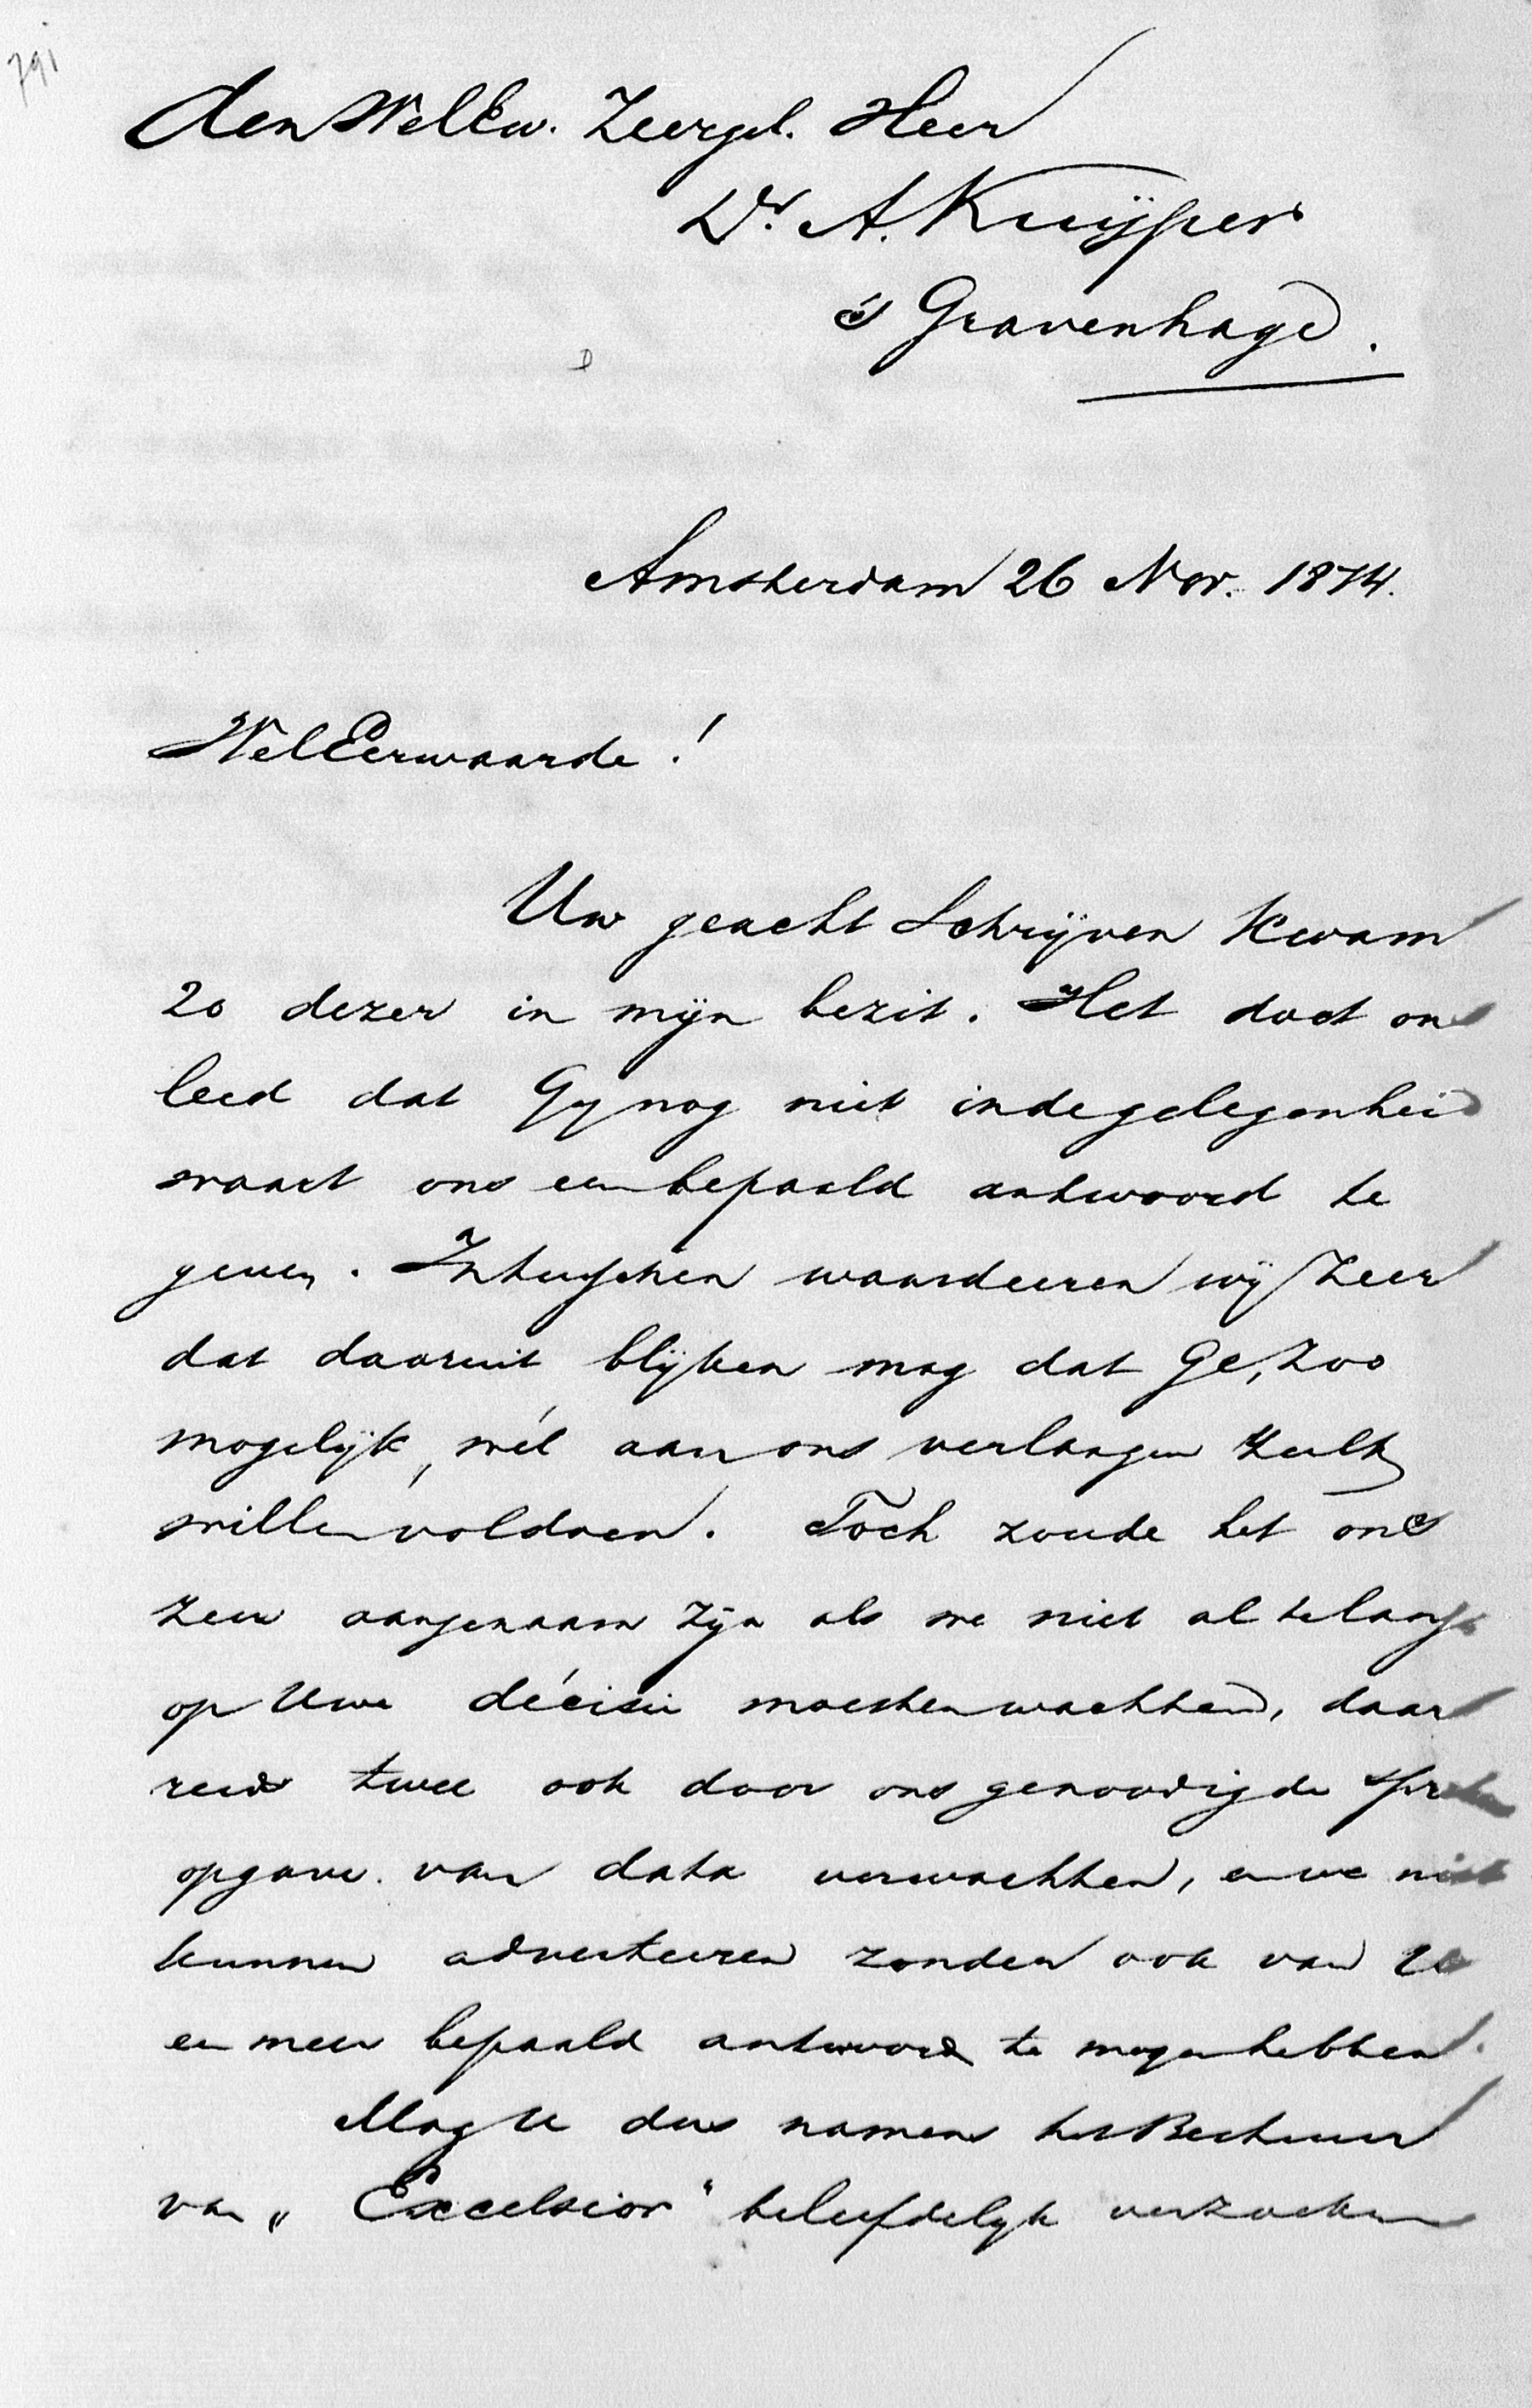 791
Den WelEw. Zeergel. Heer
Dr. A. Kuÿper
's Gravenhage.
Amsterdam 26 Nov. 1874.
WelEerwaarde!
Uw geacht Schrijven kwam
20 dezer in mijn bezit. Het doet ons
leed dat Gij nog niet in de gelegenheid
waart ons een bepaald antwoord te
geven. Intusschen waardeeren wij Zeer
dat daaruit blijken mag dat Ge, zoo
mogelijk, wél aan ons verlangen zult
willen voldoen. Toch zoude het ons
zeer aangenaam zijn als we niet al te lang
op Uwe décisie moesten wachten, daar
reeds twee ook door ons genoodigde
opgave van data verwachten, en we niet
kunnen adverteeren zonder ook van U
een meer bepaald antwoord te mogen hebben.
Mag U dus namens het Bestuur
van „Excelsior" beleefdelijk verzoeken